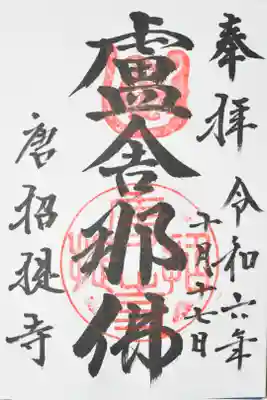 奉拝
令和六年
十月十七日
盧舎那佛
唐招提寺